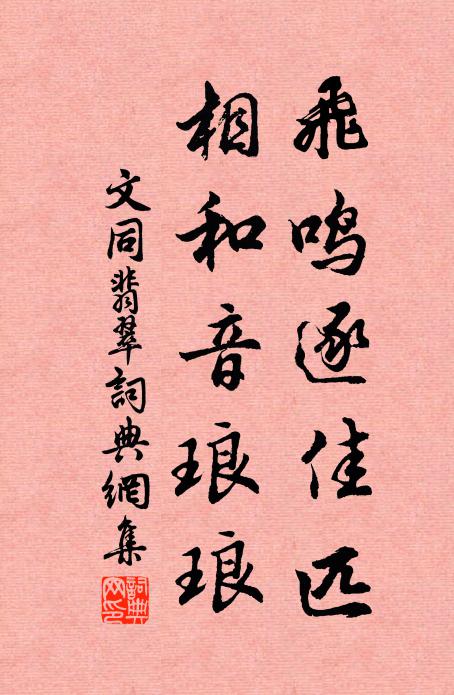 飛鳴逐佳匹
相和音琅琅
文同翡翠詞典網集
詞典网印